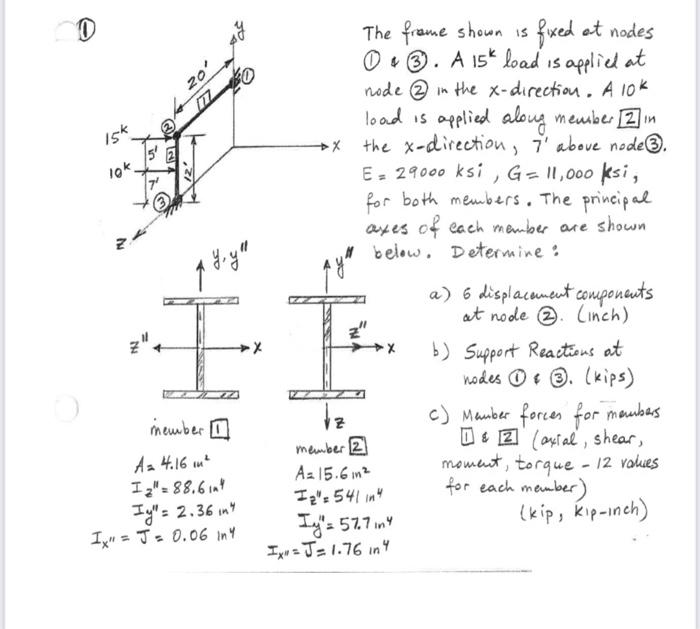 ①
y
20'
①
1
②
15k
5'
2
10k
7'
12'
③
x
z
The frame shown is fixed at nodes
① & ③. A 15k load is applied at
node ② in the x-direction. A 10k
load is applied along member 2 in
the x-direction, 7' above node ③.
E = 29000 ksi, G = 11,000 ksi,
for both members. The principal
axes of each member are shown
below. Determine:
a) 6 displacement components
at node ②. (inch)
b) Support Reactions at
nodes ① & ③. (kips)
c) Member forces for members
1 & 2 (axial, shear,
moment, torque - 12 values
for each member)
(kip, kip-inch)
y, y"
z"
x
member 1
A = 4.16 in²
Iz" = 88.6 in⁴
Iy" = 2.36 in⁴
Ix" = J = 0.06 in⁴
y"
z"
x
z
member 2
A = 15.6 in²
Iz" = 541 in⁴
Iy" = 57.7 in⁴
Ix" = J = 1.76 in⁴